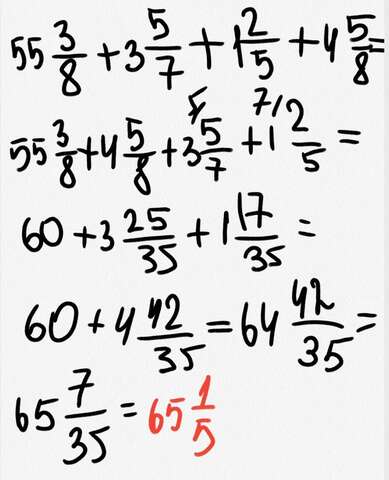 55 3/8 + 3 5/7 + 1 2/5 + 4 5/8 =
55 3/8 + 4 5/8 + 3 5/7 + 1 2/5 =
60 + 3 25/35 + 1 17/35 =
60 + 4 42/35 = 64 42/35 =
65 7/35 = 65 1/5